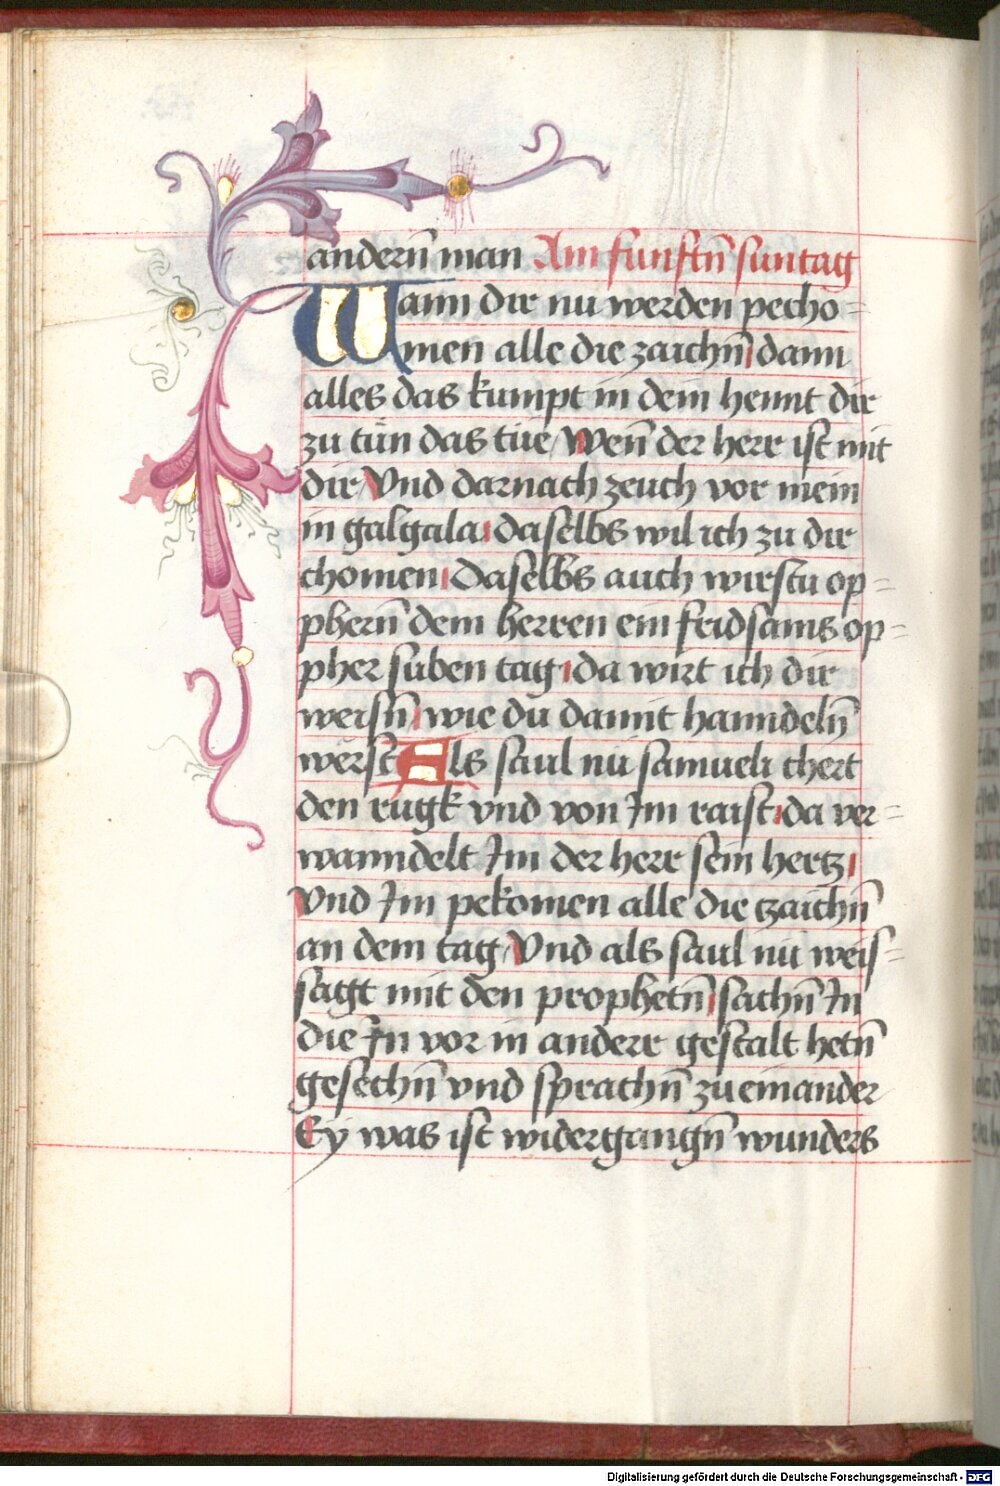 andern̄ man Am funftn̄ suntag
Wann dir nu werden pecho=
men alle die zaichn̄ dann
alles das kumpt in dein hennt dir
zu tün das tüe / Wen̄ der herr ist mit
dir / Vnd darnach zeuch vor mein
in galgala daselbs wil ich zu dir
chomen daselbs auch wirstu op=
phern̄ dem herren ein fridsams op=
pher siben tag da wirt ich dir
weisn̄ wie du damit hanndeln̄
werst Als saul nu samueli chert
den rugk vnd von Im raist da ver=
wanndelt Im der herr sein hertz
Vnd Im pekomen alle die tzaichn̄
an dem tag / Vnd als saul nu weis=
sagt mit den prophetn̄ sachn̄ In
die In vor in anderr gestalt hetn̄
gesechn̄ vnd sprachn̄ zu einander
Ey was ist widergangn̄ wunders
Digitalisierung gefördert durch die Deutsche Forschungsgemeinschaft - DFG